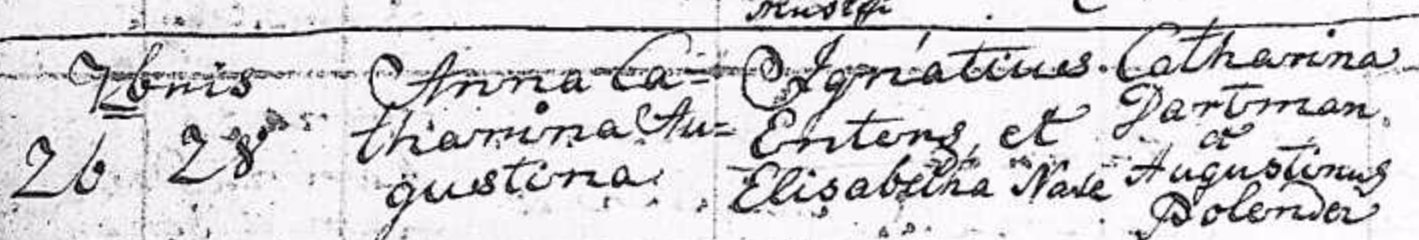 7bris
26 28
Anna Ca=
tharina Au=
gustina.
Ignatius
Enters, et
Elisabetha Nase
Catharina
Dartman.
et
Augustinus
Bolender